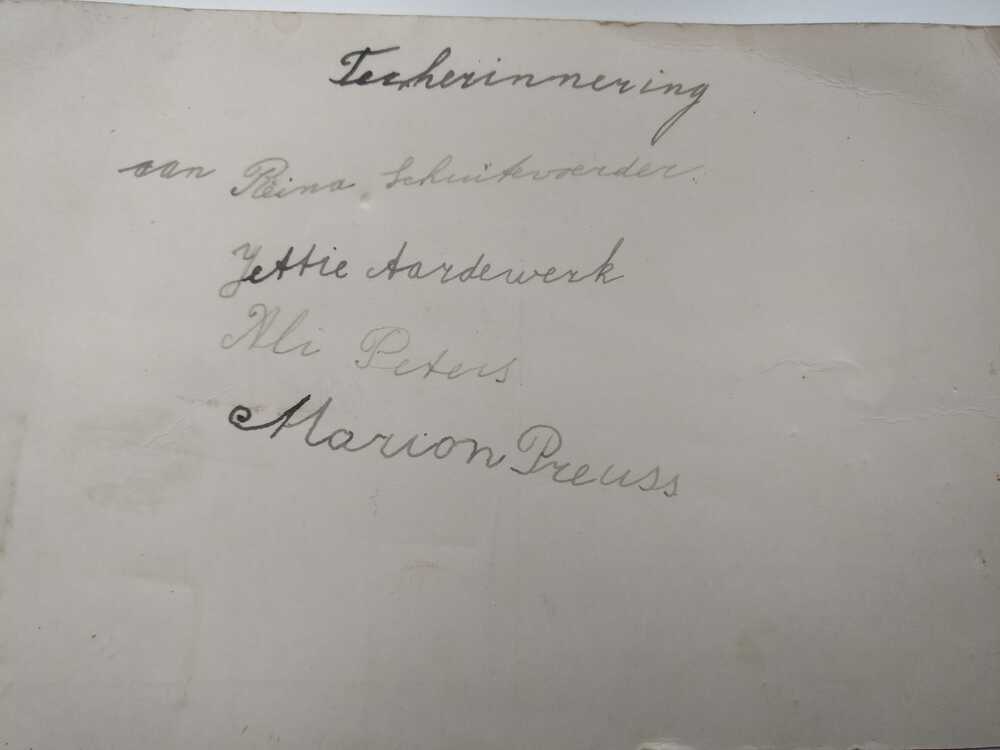 Ter herinnering
aan Reina Schuitevoerder.
Jettie Aardewerk
Ali Peters
Marion Preuss